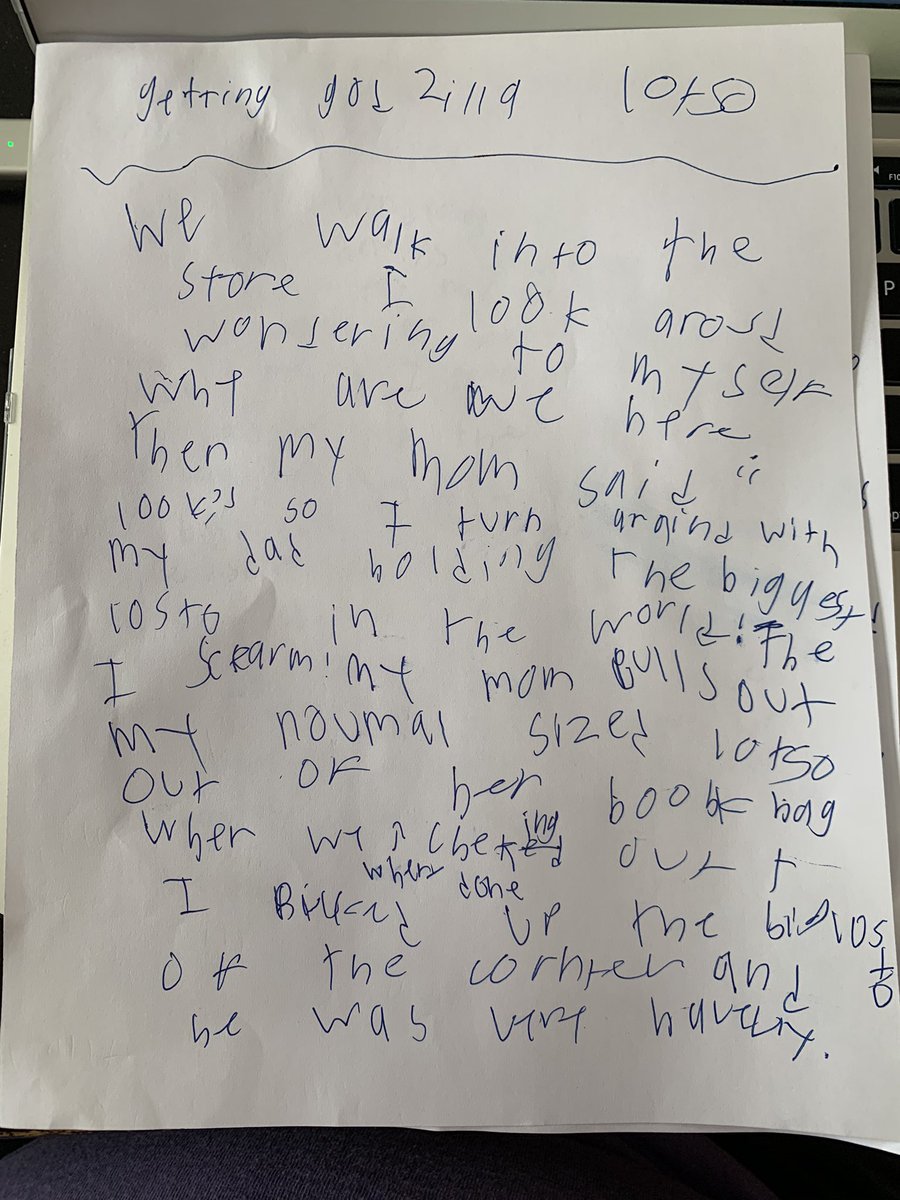 getting godzilla lotso
We walk into the
store I look arosd
wondering to myself
why are we here
Then my mom said "
look" so I turn argind with
my dad holding the biggest
losto in the world! The
I scearm! my mom pulls out
my noumal sized lotso
out of her book bag
when we cheking out
I Bicked when done up the big losto
of the cornter and
he was very havey.
P
F10